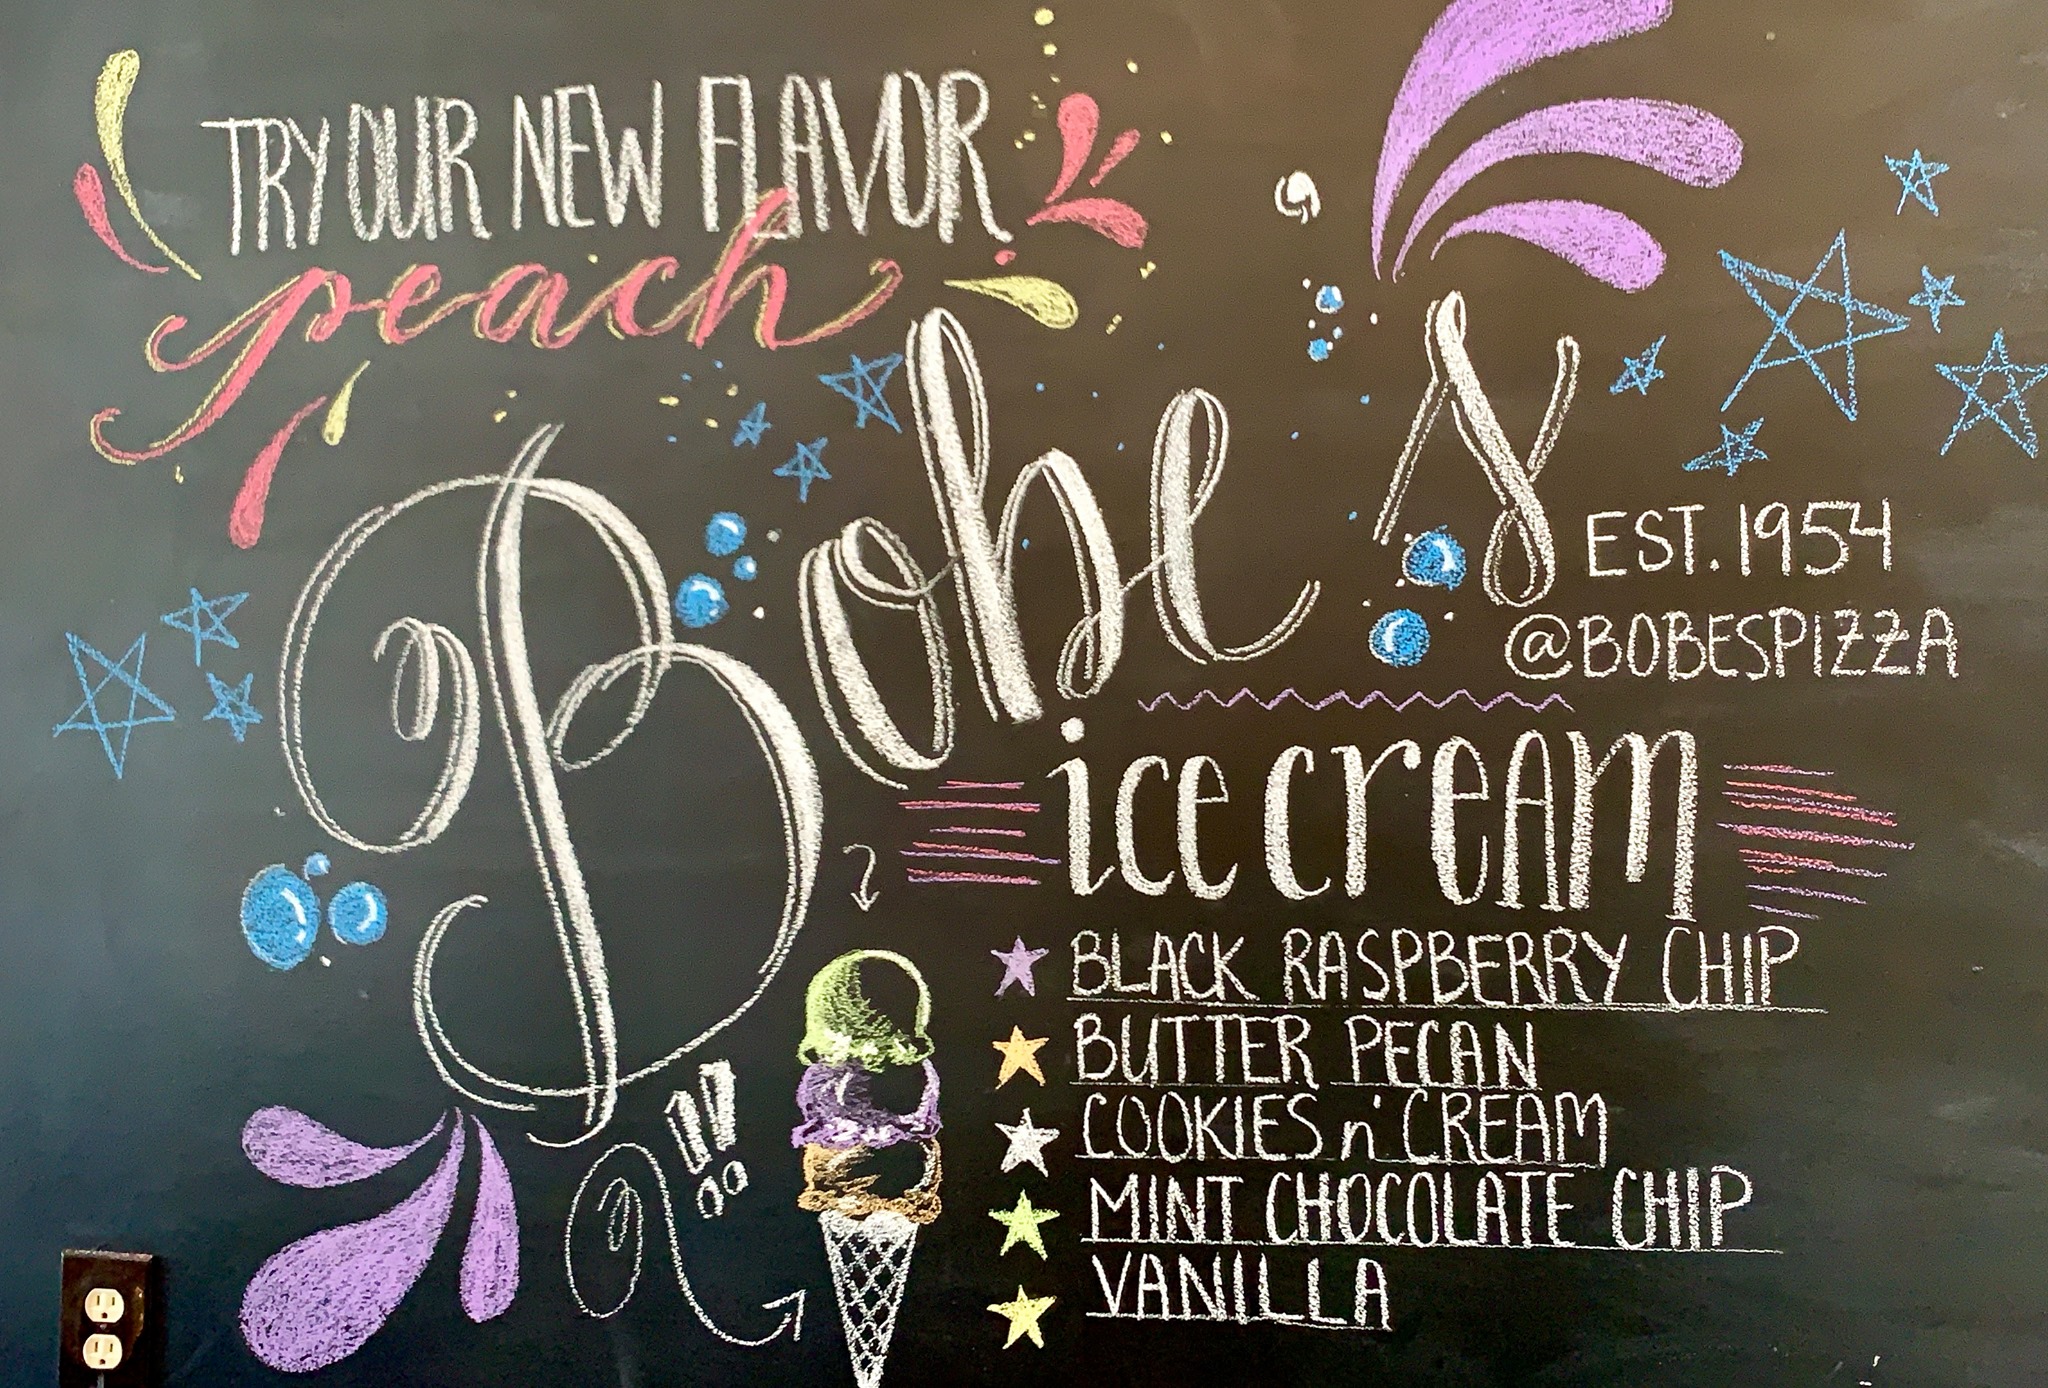 TRY OUR NEW FLAVOR
peach
Bobe's
EST. 1954
@BOBESPIZZA
ice creAm
BLACK RASPBERRY CHIP
BUTTER PECAN
COOKIES n' CREAM
MINT CHOCOLATE CHIP
VANILLA
!!